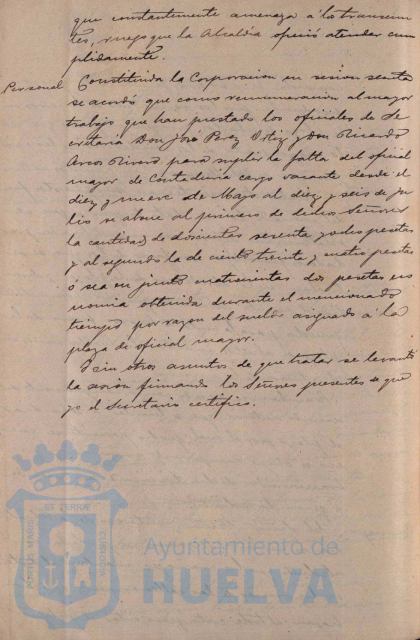 que constantemente amenaza á los transeun
tes, ruego que la Alcaldía ofreció atender cum
plidamente.
Personal Constituida la Corporacion en sesion secreta
se acordó que como remuneracion al mayor
trabajo que han prestado los oficiales de Se
cretaria Don José Perez Ortiz y Don Ricardo
Arcos Rivero para suplir la falta del oficial
mayor de Contaduria cargo vacante desde el
diez y nueve de Mayo al diez y seis de Ju
lio se abone al primero de dichos Señores
la cantidad de doscientas sesenta y ocho pesetas
y al segundo la de ciento treinta y cuatro pesetas
ó sea en junto cuatrocientas dos pesetas eco
nomia obtenida durante el mencionado
tiempo por razon del sueldo asignado á la
plaza de oficial mayor.
Y sin otros asuntos de que tratar se levantó
la sesion firmando los Señores presentes de que
yo el Secretario certifico.
PORTUS MARIS ET TERRÆ CUSTODIA
Ayuntamiento de
HUELVA